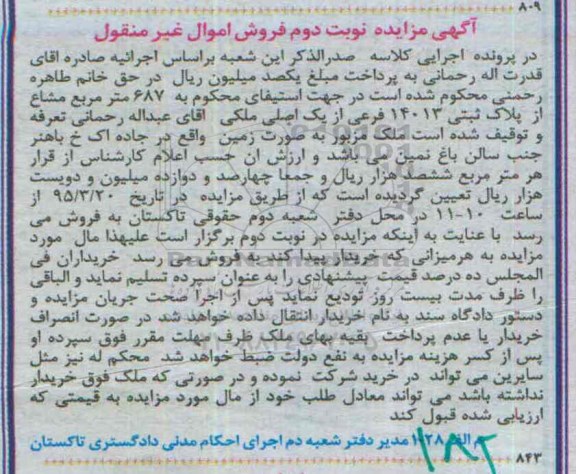 ۸۰۹
آگهی مزایده نوبت دوم فروش اموال غیر منقول
در پرونده اجرایی کلاسه صدرالذکر این شعبه براساس اجرائیه صادره اقای
قدرت اله رحمانی به پرداخت مبلغ یکصد میلیون ریال در حق خانم طاهره
رحمنی محکوم شده است در جهت استیفای محکوم به ۶۸۷ متر مربع مشاع
از پلاک ثبتی ۱۴۰۱۳ فرعی از یک اصلی ملکی اقای عبداله رحمانی تعرفه
و توقیف شده است ملک مزبور به صورت زمین واقع در جاده اک خ باهنر
جنب سالن باغ نمین می باشد و ارزش ان حسب اعلام کارشناس از قرار
هر متر مربع ششصد هزار ریال و جمعا چهارصد و دوازده میلیون و دویست
هزار ریال تعیین گردیده است که از طریق مزایده در تاریخ ۹۵/۳/۲۰ از
ساعت ۱۰-۱۱ در محل دفتر شعبه دوم حقوقی تاکستان به فروش می
رسد با عنایت به اینکه مزایده در نوبت دوم برگزار است علیهذا مال مورد
مزایده به هرمیزانی که خریدار پیدا کند به فروش می رسد خریداران فی
المجلس ده درصد قیمت پیشنهادی را به عنوان سپرده تسلیم نماید و الباقی
را ظرف مدت بیست روز تودیع نماید پس از اجرا صحت جریان مزایده و
دستور دادگاه سند به نام خریدار انتقال داده خواهد شد در صورت انصراف
خریدار یا عدم پرداخت بقیه بهای ملک ظرف مهلت مقرر فوق سپرده او
پس از کسر هزینه مزایده به نفع دولت ضبط خواهد شد محکم له نیز مثل
سایرین می تواند در خرید شرکت نموده و در صورتی که ملک فوق خریدار
نداشته باشد می تواند معادل طلب خود از مال مورد مزایده به قیمتی که
ارزیابی شده قبول کند
مدیر دفتر شعبه دم اجرای احکام مدنی دادگستری تاکستان
۸۴۳